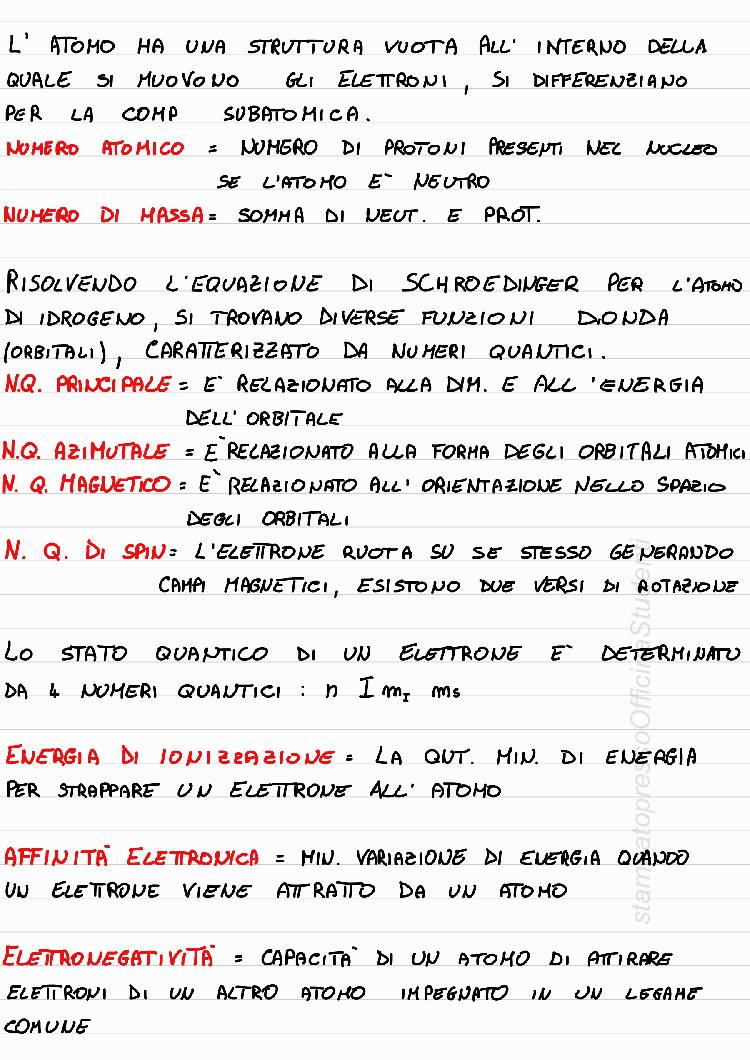 L' ATOMO HA UNA STRUTTURA VUOTA ALL' INTERNO DELLA
QUALE SI MUOVONO GLI ELETTRONI, SI DIFFERENZIANO
PER LA COMP SUBATOMICA.
NUMERO ATOMICO = NUMERO DI PROTONI PRESENTI NEL NUCLEO
SE L'ATOMO E` NEUTRO
NUMERO DI MASSA = SOMMA DI NEUT. E PROT.
RISOLVENDO L'EQUAZIONE DI SCHROEDINGER PER L'ATOMO
DI IDROGENO, SI TROVANO DIVERSE FUNZIONI D.ONDA
(ORBITALI), CARATTERIZZATO DA NUMERI QUANTICI.
N.Q. PRINCIPALE = E` RELAZIONATO ALLA DIM. E ALL 'ENERGIA
DELL' ORBITALE
N.Q. AZIMUTALE = E` RELAZIONATO ALLA FORMA DEGLI ORBITALI ATOMICI
N. Q. MAGNETICO = E` RELAZIONATO ALL' ORIENTAZIONE NELLO SPAZIO
DEGLI ORBITALI
N. Q. DI SPIN = L'ELETTRONE RUOTA SU SE STESSO GENERANDO
CAMPI MAGNETICI, ESISTONO DUE VERSI DI ROTAZIONE
LO STATO QUANTICO DI UN ELETTRONE E` DETERMINATO
DA 4 NUMERI QUANTICI : n I mI ms
ENERGIA DI IONIZZAZIONE = LA QNT. MIN. DI ENERGIA
PER STRAPPARE UN ELETTRONE ALL' ATOMO
AFFINITÀ ELETTRONICA = MIN. VARIAZIONE DI ENERGIA QUANDO
UN ELETTRONE VIENE ATTRATTO DA UN ATOMO
ELETTRONEGATIVITÀ = CAPACITÀ DI UN ATOMO DI ATTIRARE
ELETTRONI DI UN ALTRO ATOMO IMPEGNATO IN UN LEGAME
COMUNE
stampatopressoOfficinaStudenti